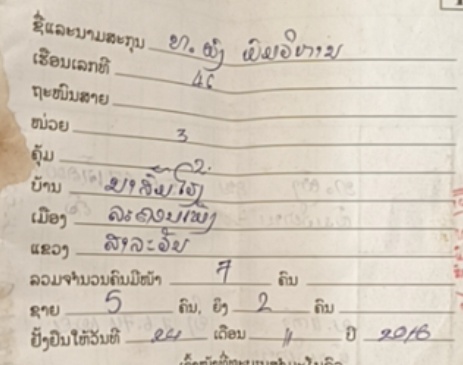 ຊື່ແລະນາມສະກຸນ ທ. ຫຼົງ
ເຮືອນເລກທີ 46
ຖະໜົນສາຍ
ໜ່ວຍ 3
ຄຸ້ມ 2
ບ້ານ
ເມືອງ ລະຄອນເພັງ
ແຂວງ ສາລະວັນ
ລວມຈຳນວນຄົນມີໜ້າ 7 ຄົນ
ຊາຍ 5 ຄົນ, ຍິງ 2 ຄົນ
ຢັ້ງຢືນໃຫ້ວັນທີ 24 ເດືອນ 11 ປີ 2016